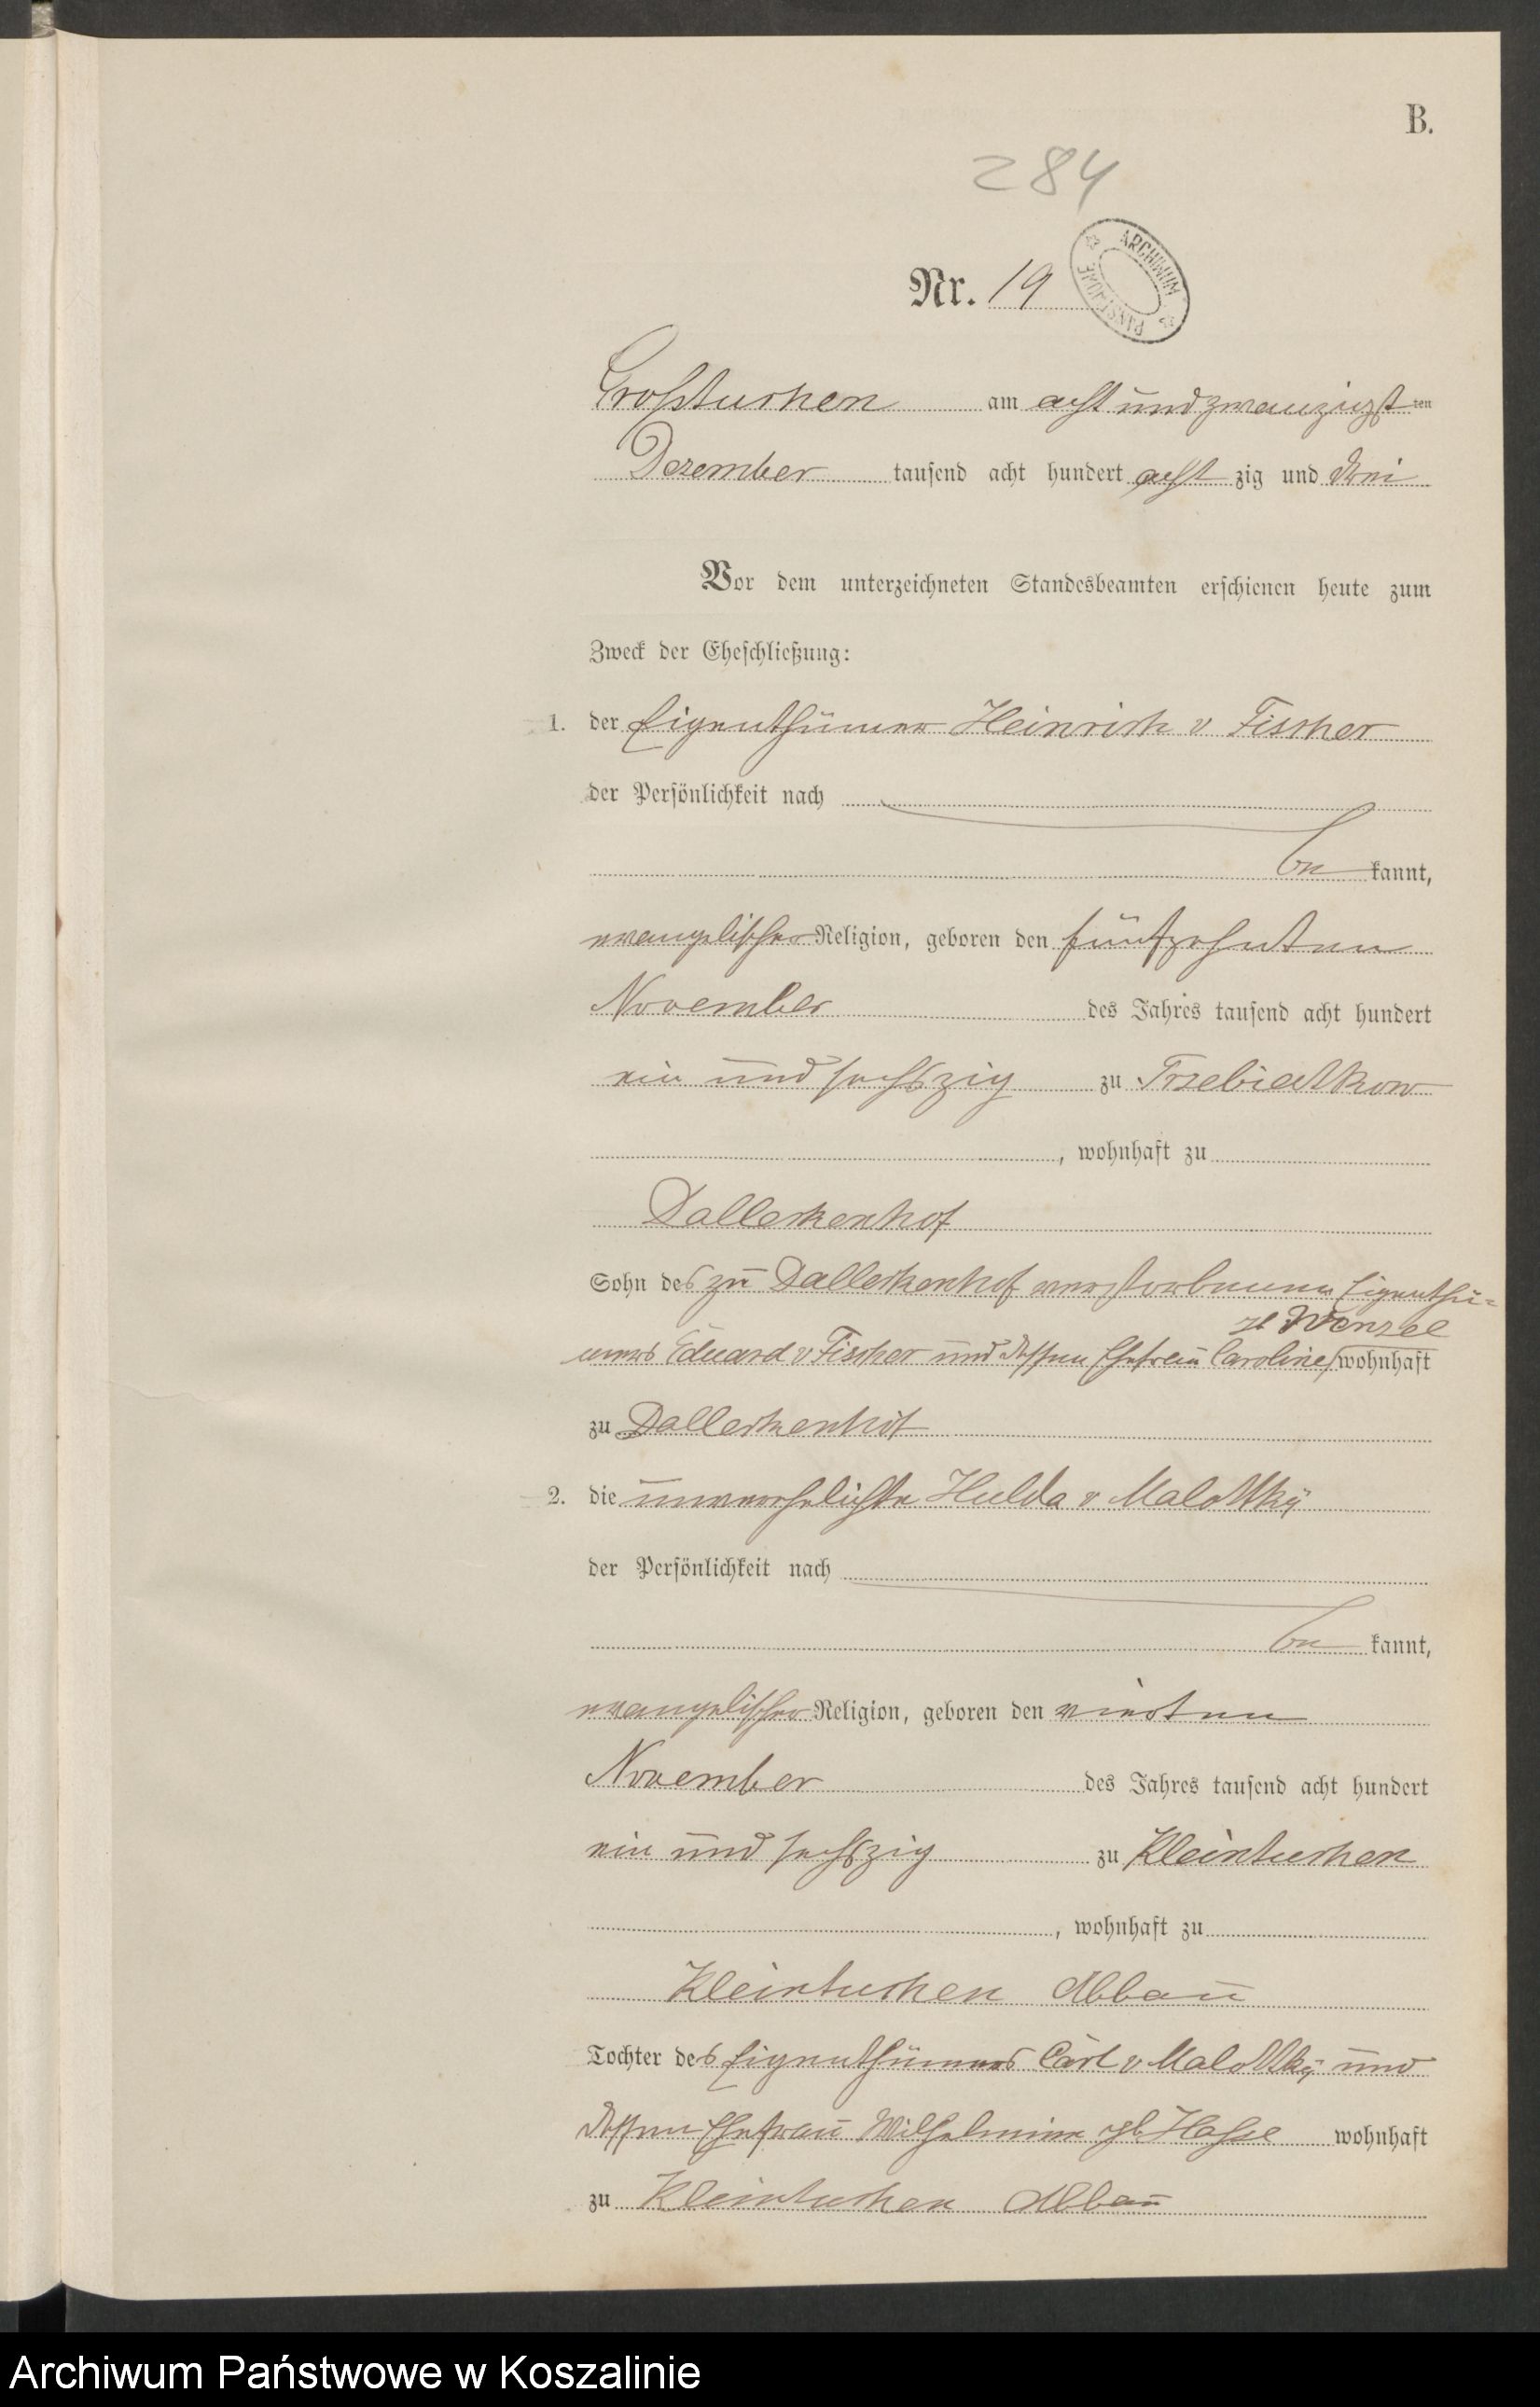 B.
284
Nr. 19
ARCHIWUM PAŃSTWOWE
Großtuchen am acht und zwanzigst ten
Dezember tausend acht hundert acht zig und drei
Vor dem unterzeichneten Standesbeamten erschienen heute zum
Zweck der Eheschließung:
1. der Eigenthümer Heinrich v Fischer
der Persönlichkeit nach
be kannt,
evangelischer Religion, geboren den fünfzehnten
November des Jahres tausend acht hundert
ein und sechszig zu Trzebiatkow
, wohnhaft zu
Dallerkenhof
Sohn des zu Dallerkenhof verstorbenen Eigenthü-
gb Wenzel
mers Eduard v Fischer und dessen Ehefrau Caroline wohnhaft
zu Dallerkenhof
2. die unverehelichte Hulda v Malottky
der Persönlichkeit nach
be kannt,
evangelischer Religion, geboren den vierten
November des Jahres tausend acht hundert
ein und sechszig zu Kleintuchen
, wohnhaft zu
Kleintuchen Abbau
Tochter des Eigenthümers Carl v Malottky und
dessen Ehefrau Wilhelmine gb Hasse wohnhaft
zu Kleintuchen Abbau
Archiwum Państwowe w Koszalinie